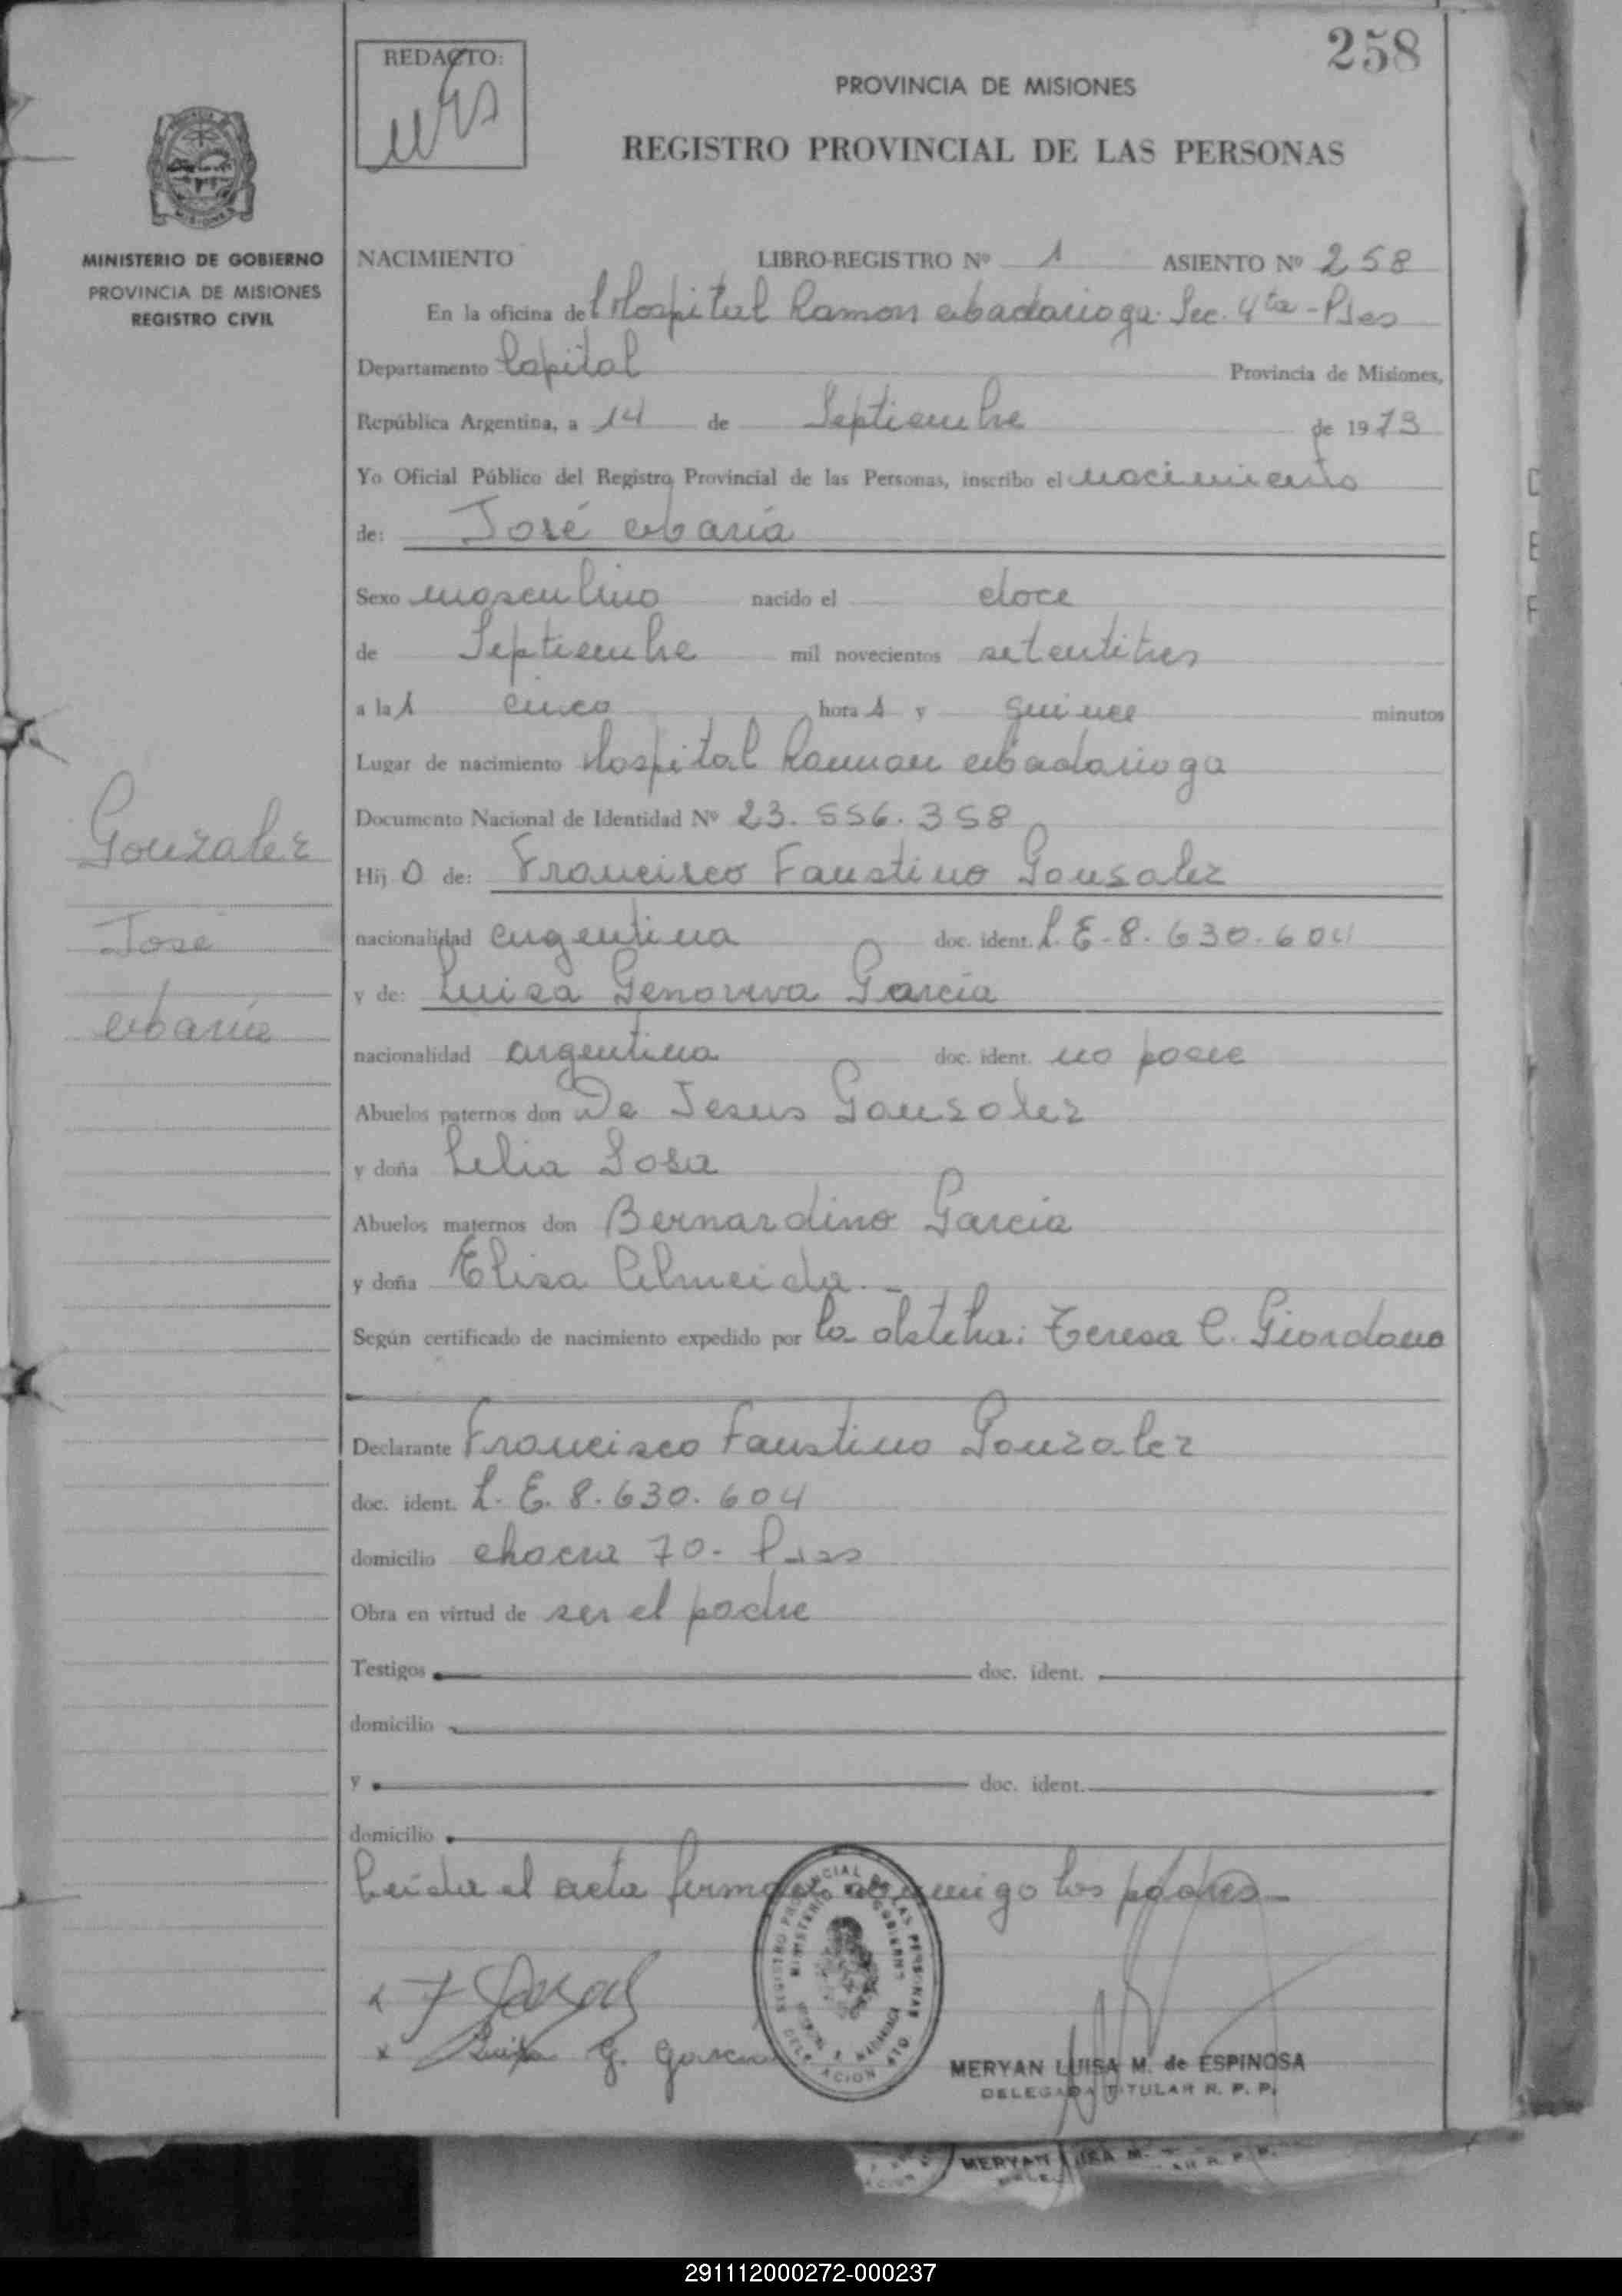 258
REDACTO:
PROVINCIA DE MISIONES
REGISTRO PROVINCIAL DE LAS PERSONAS
MINISTERIO DE GOBIERNO
PROVINCIA DE MISIONES
REGISTRO CIVIL
NACIMIENTO LIBRO-REGISTRO Nº 1 ASIENTO Nº 258
En la oficina del Hospital Ramon Madariaga. Sec. 4ta - Pdas
Departamento Capital Provincia de Misiones,
República Argentina, a 14 de Septiembre de 1973
Yo Oficial Público del Registro Provincial de las Personas, inscribo el nacimiento
de: José María
Sexo masculino nacido el doce
de Septiembre mil novecientos setentitres
a las cinco horas y quince minutos
Lugar de nacimiento Hospital Ramon Madariaga
Documento Nacional de Identidad Nº 23.556.358
Hijo de: Francisco Faustino Gonsalez
nacionalidad argentina doc. ident. L.E-8.630.604
y de: Luisa Genoveva García
nacionalidad argentina doc. ident. no posee
Abuelos paternos don De Jesus Gonzalez
y doña Lelia Sosa
Abuelos maternos don Bernardino Garcia
y doña Elisa Almeida.-
Según certificado de nacimiento expedido por la obstetra: Teresa C. Giordano
Declarante Francisco Faustino Gonzalez
doc. ident. L.E. 8.630.604
domicilio chacra 70- Pdas
Obra en virtud de ser el padre
Testigos doc. ident.
domicilio
y doc. ident.
domicilio
Leída el acta firman conmigo los padres-
Gonzalez
José
María
x F Gonzal
x Luisa G. Garcia
REGISTRO PROVINCIAL DE LAS PERSONAS
MINISTERIO DE GOBIERNO
MERYAN LUISA M. de ESPINOSA
DELEGADA TITULAR R. P. P.
MERYAN LUISA M.
291112000272-000237